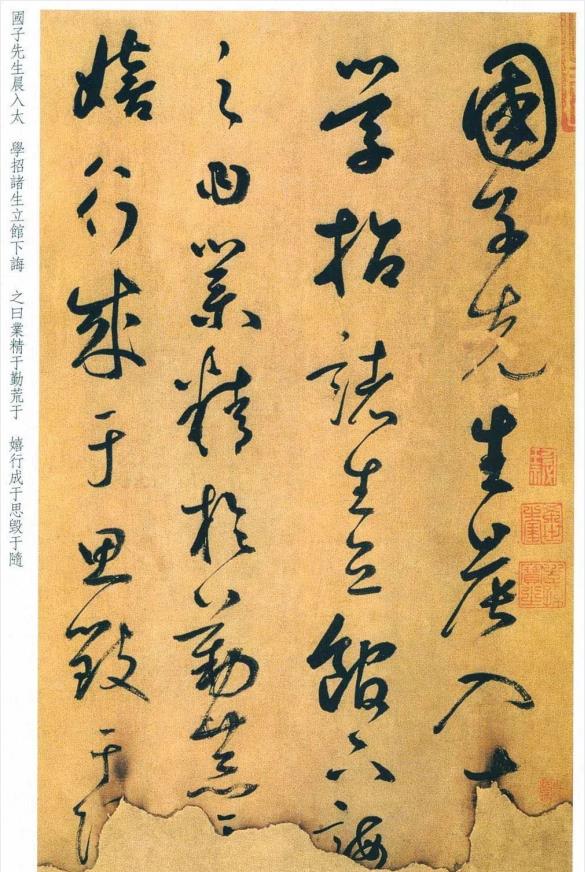 國子先生晨入太
學招諸生立館下誨
之曰業精於勤荒于
嬉行成于思毀于
國子先生晨入太 學招諸生立館下誨 之曰業精于勤荒于 嬉行成于思毁于隨